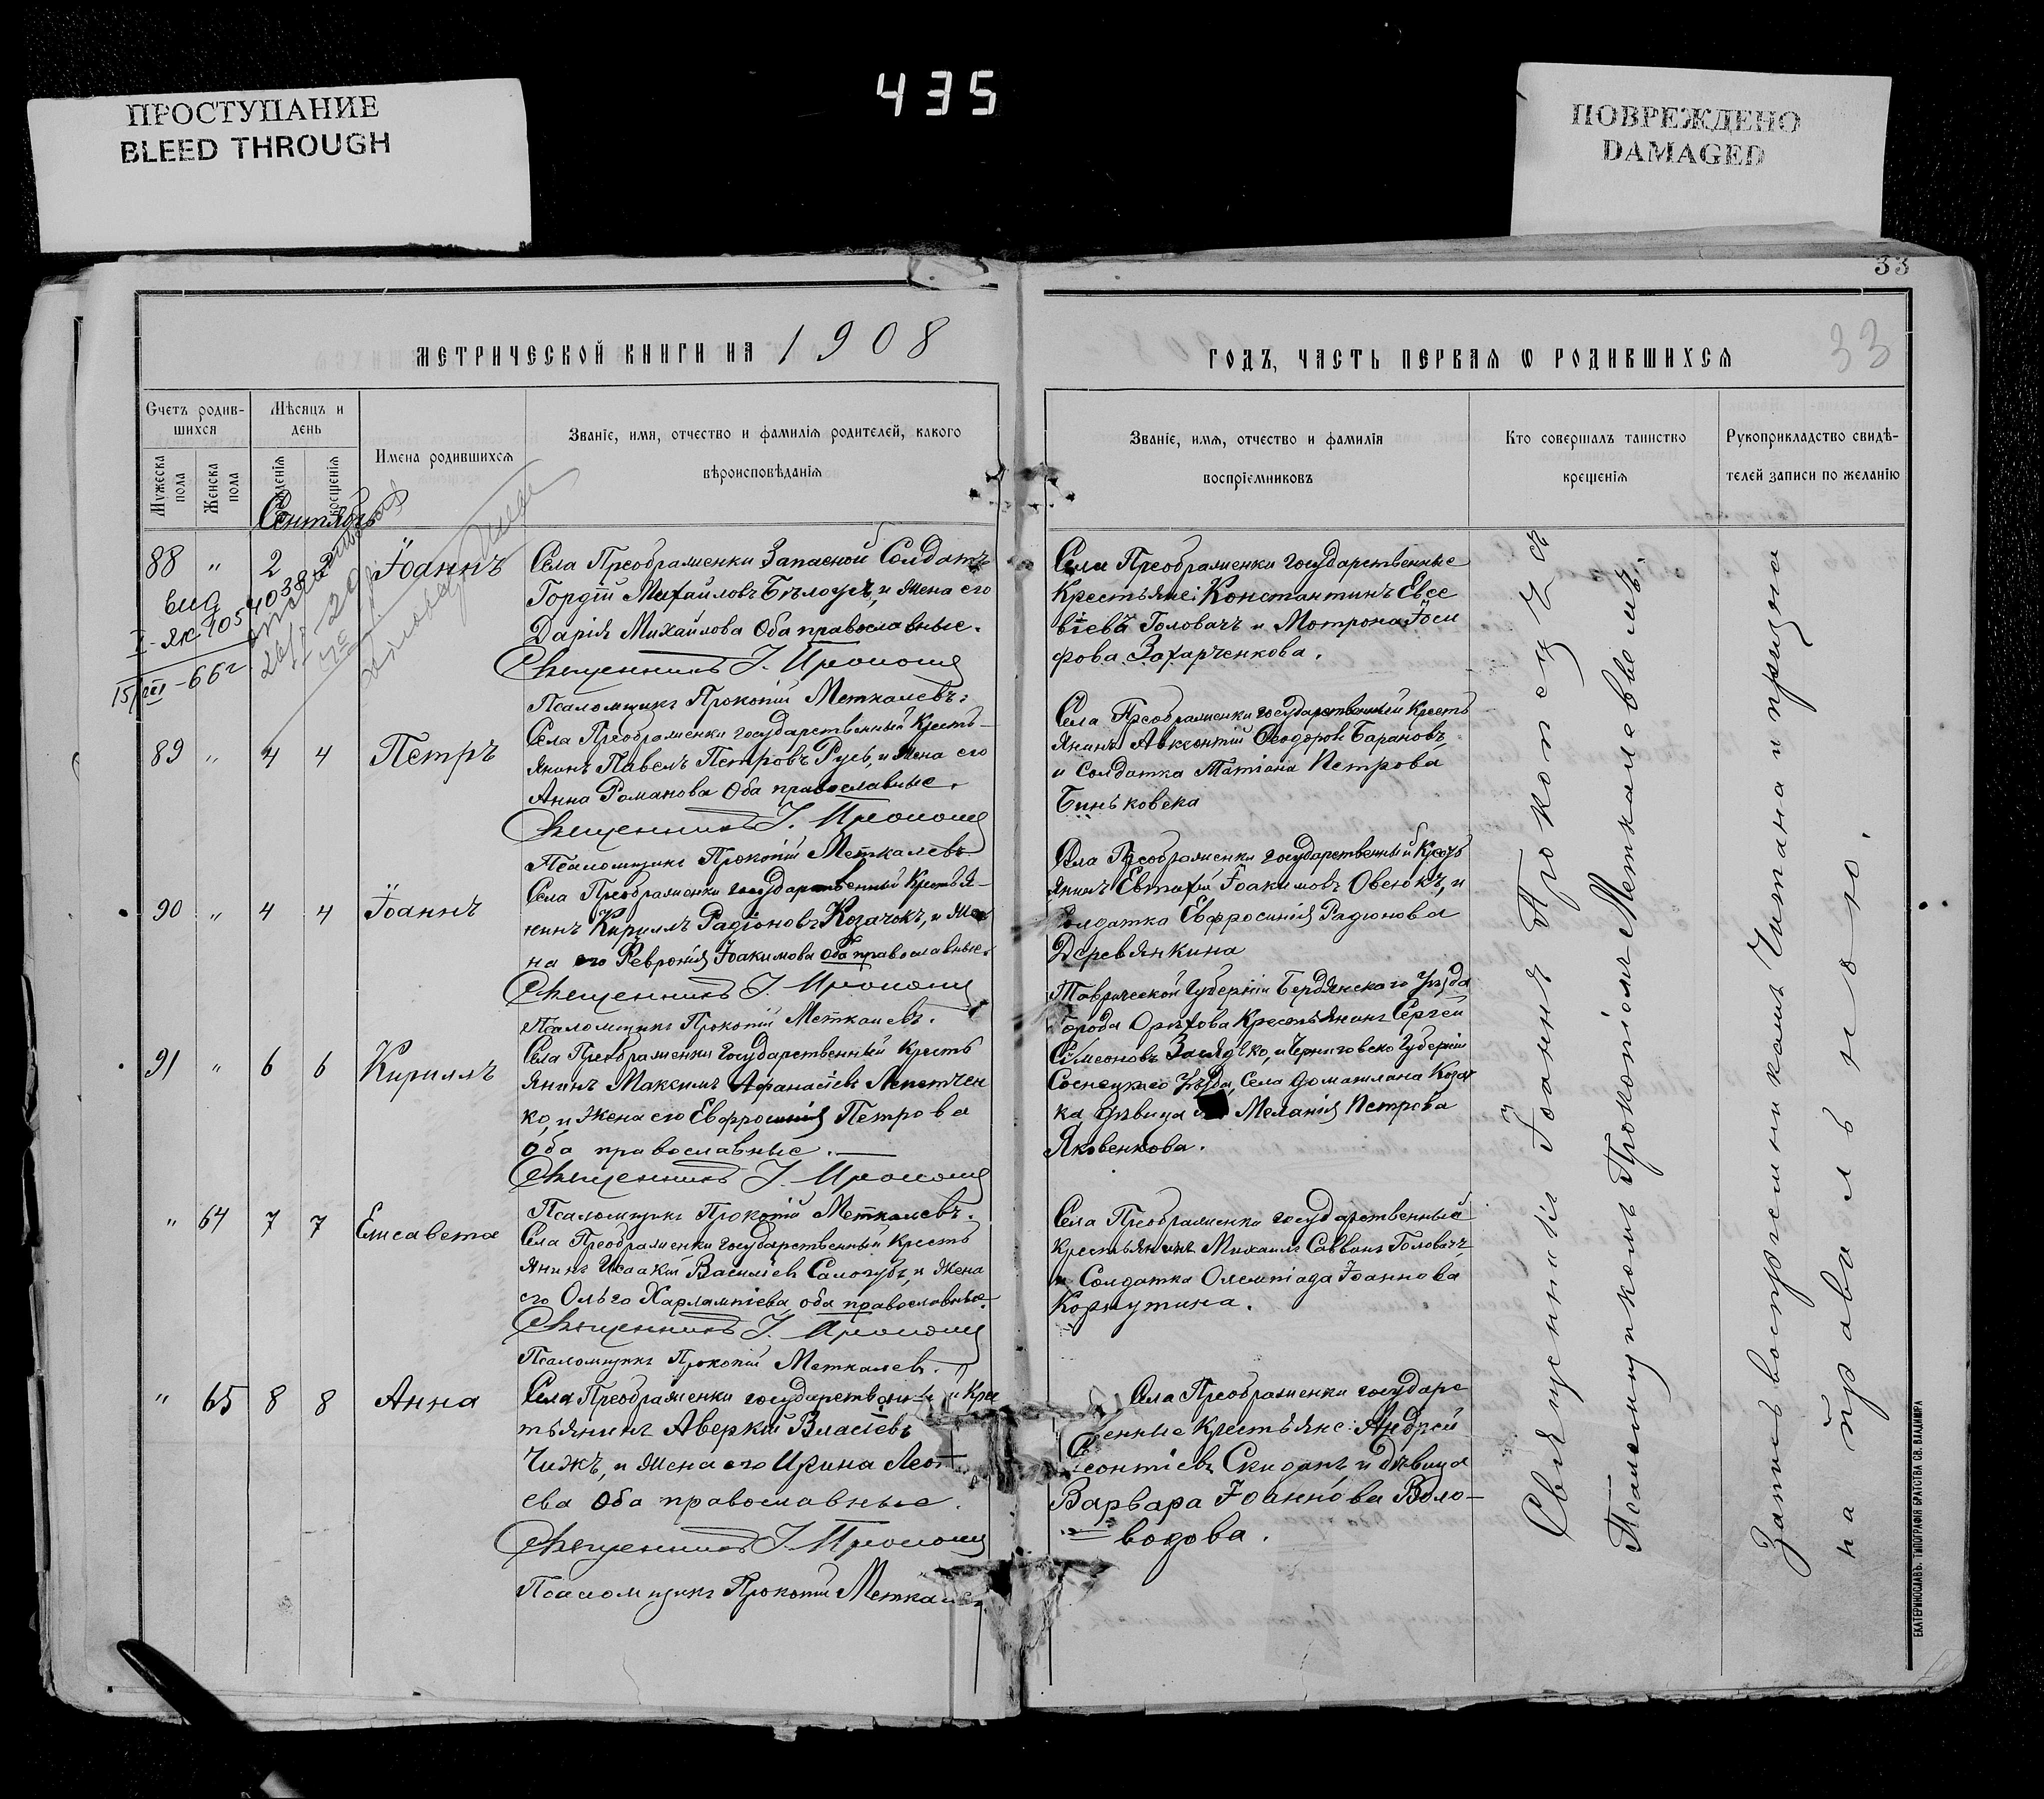 435
ПРОСТУПАНИЕ
BLEED THROUGH
ПОВРЕЖДЕНО
DAMAGED
33
33
МЕТРИЧЕСКОЙ КНИГИ НА 1908
Счетъ родив-
шихся
Мѣсяцъ и
день
Мужеска
пола
Женска
пола
рожденія
крещенія
Имена родившихся
Званіе, имя, отчество и фамилія родителей, какого
вѣроисповѣданія
Сентябрь
88 " 2 Іоаннъ
Села Преображенки Запасной Солдатъ
Гордій Михайловъ Бѣлоусъ, и жена его
Дарія Михайлова Оба православные.
Священникъ І.
Псаломщикъ Прокопій Меткалевъ.
вид
I-ЯК 705403
15/III-66г
89 " 4 4 Петръ
Села Преображенки государственный Кресть-
янинъ Павелъ Петровъ Русь, и жена его
Анна Романова Оба православные.
Священникъ І.
Псаломщикъ Прокопій Меткалевъ
90 " 4 4 Іоаннъ
Села Преображенки государственный Крестья-
нинъ Кириллъ Радіоновъ Козачокъ, и же
на его Февронія Іоакимова оба православные.
Священникъ І.
Псаломщикъ Прокопій Меткалевъ.
91 " 6 6 Кириллъ
Села Преображенки государственный Кресть
янинъ Максимъ Афанасіевъ Лепетчен
ко, и жена его Евфросинія Петрова
оба православные.
Священникъ І.
Псаломщикъ Прокопій Меткалевъ.
" 64 7 7 Елисавета
Села Преображенки государственный Кресть
янинъ Исаакій Василіевъ Самогубъ, и жена
его Ольга Харлампіева, оба православные.
Священникъ І.
Псаломщикъ Прокопій Меткалевъ.
" 65 8 8 Анна
Села Преображенки государственный Крес
тьянинъ Аверкій Власіевъ
Чижъ, и жена его Ирина Леон
ева Оба православные.
Священникъ І.
Псаломщикъ Прокопій Меткалевъ
ГОДЪ, ЧАСТЬ ПЕРВАЯ Ѡ РОДИВШИХСЯ
Званіе, имя, отчество и фамилія
воспріемниковъ
Кто совершалъ таинство
крещенія
Рукоприкладство свидѣ-
телей записи по желанію
Села Преображенки государственные
Крестьяне: Константинъ Евсе
віевъ Головачъ и Мотрона Іоси
фова Захарченкова.
Села Преображенки государственный Кресть
янинъ Авксентій Ѳеодоровъ Барановъ,
и Солдатка Татіана Петрова
Биньковска
Села Преображенки государственный Кресть
янинъ Евтихій Іоакимовъ Овсюкъ, и
Солдатка Евфросинія Радіонова
Деревянкина
Таврической Губерніи Бердянскаго Уѣзда
Города Орѣхова Крестьянинъ Сергей
Симеоновъ и Черниговско Губерніи
Сосницкаго Уѣзда, Села Козач
ка дѣвица Меланія Петрова
Яковенкова.
Села Преображенки государственный
крестьянинъ Михаилъ Саввинъ Головачъ
и Солдатка Олемпіада Іоаннова
Кормутина.
Села Преображенки государс
венные Крестьяне: Андрей
Леонтіевъ Скиданъ и дѣвица
Варвара Іоаннова Воло-
водова.
Священникъ Іоаннъ
Псаломщикомъ Прокопіемъ Меткалевымъ.
Запись воспріемникамъ читана и признана
правильною.
ЕКАТЕРИНОСЛАВЪ. ТИПОГРАФІЯ БРАТСТВА СВ. ВЛАДИМІРА